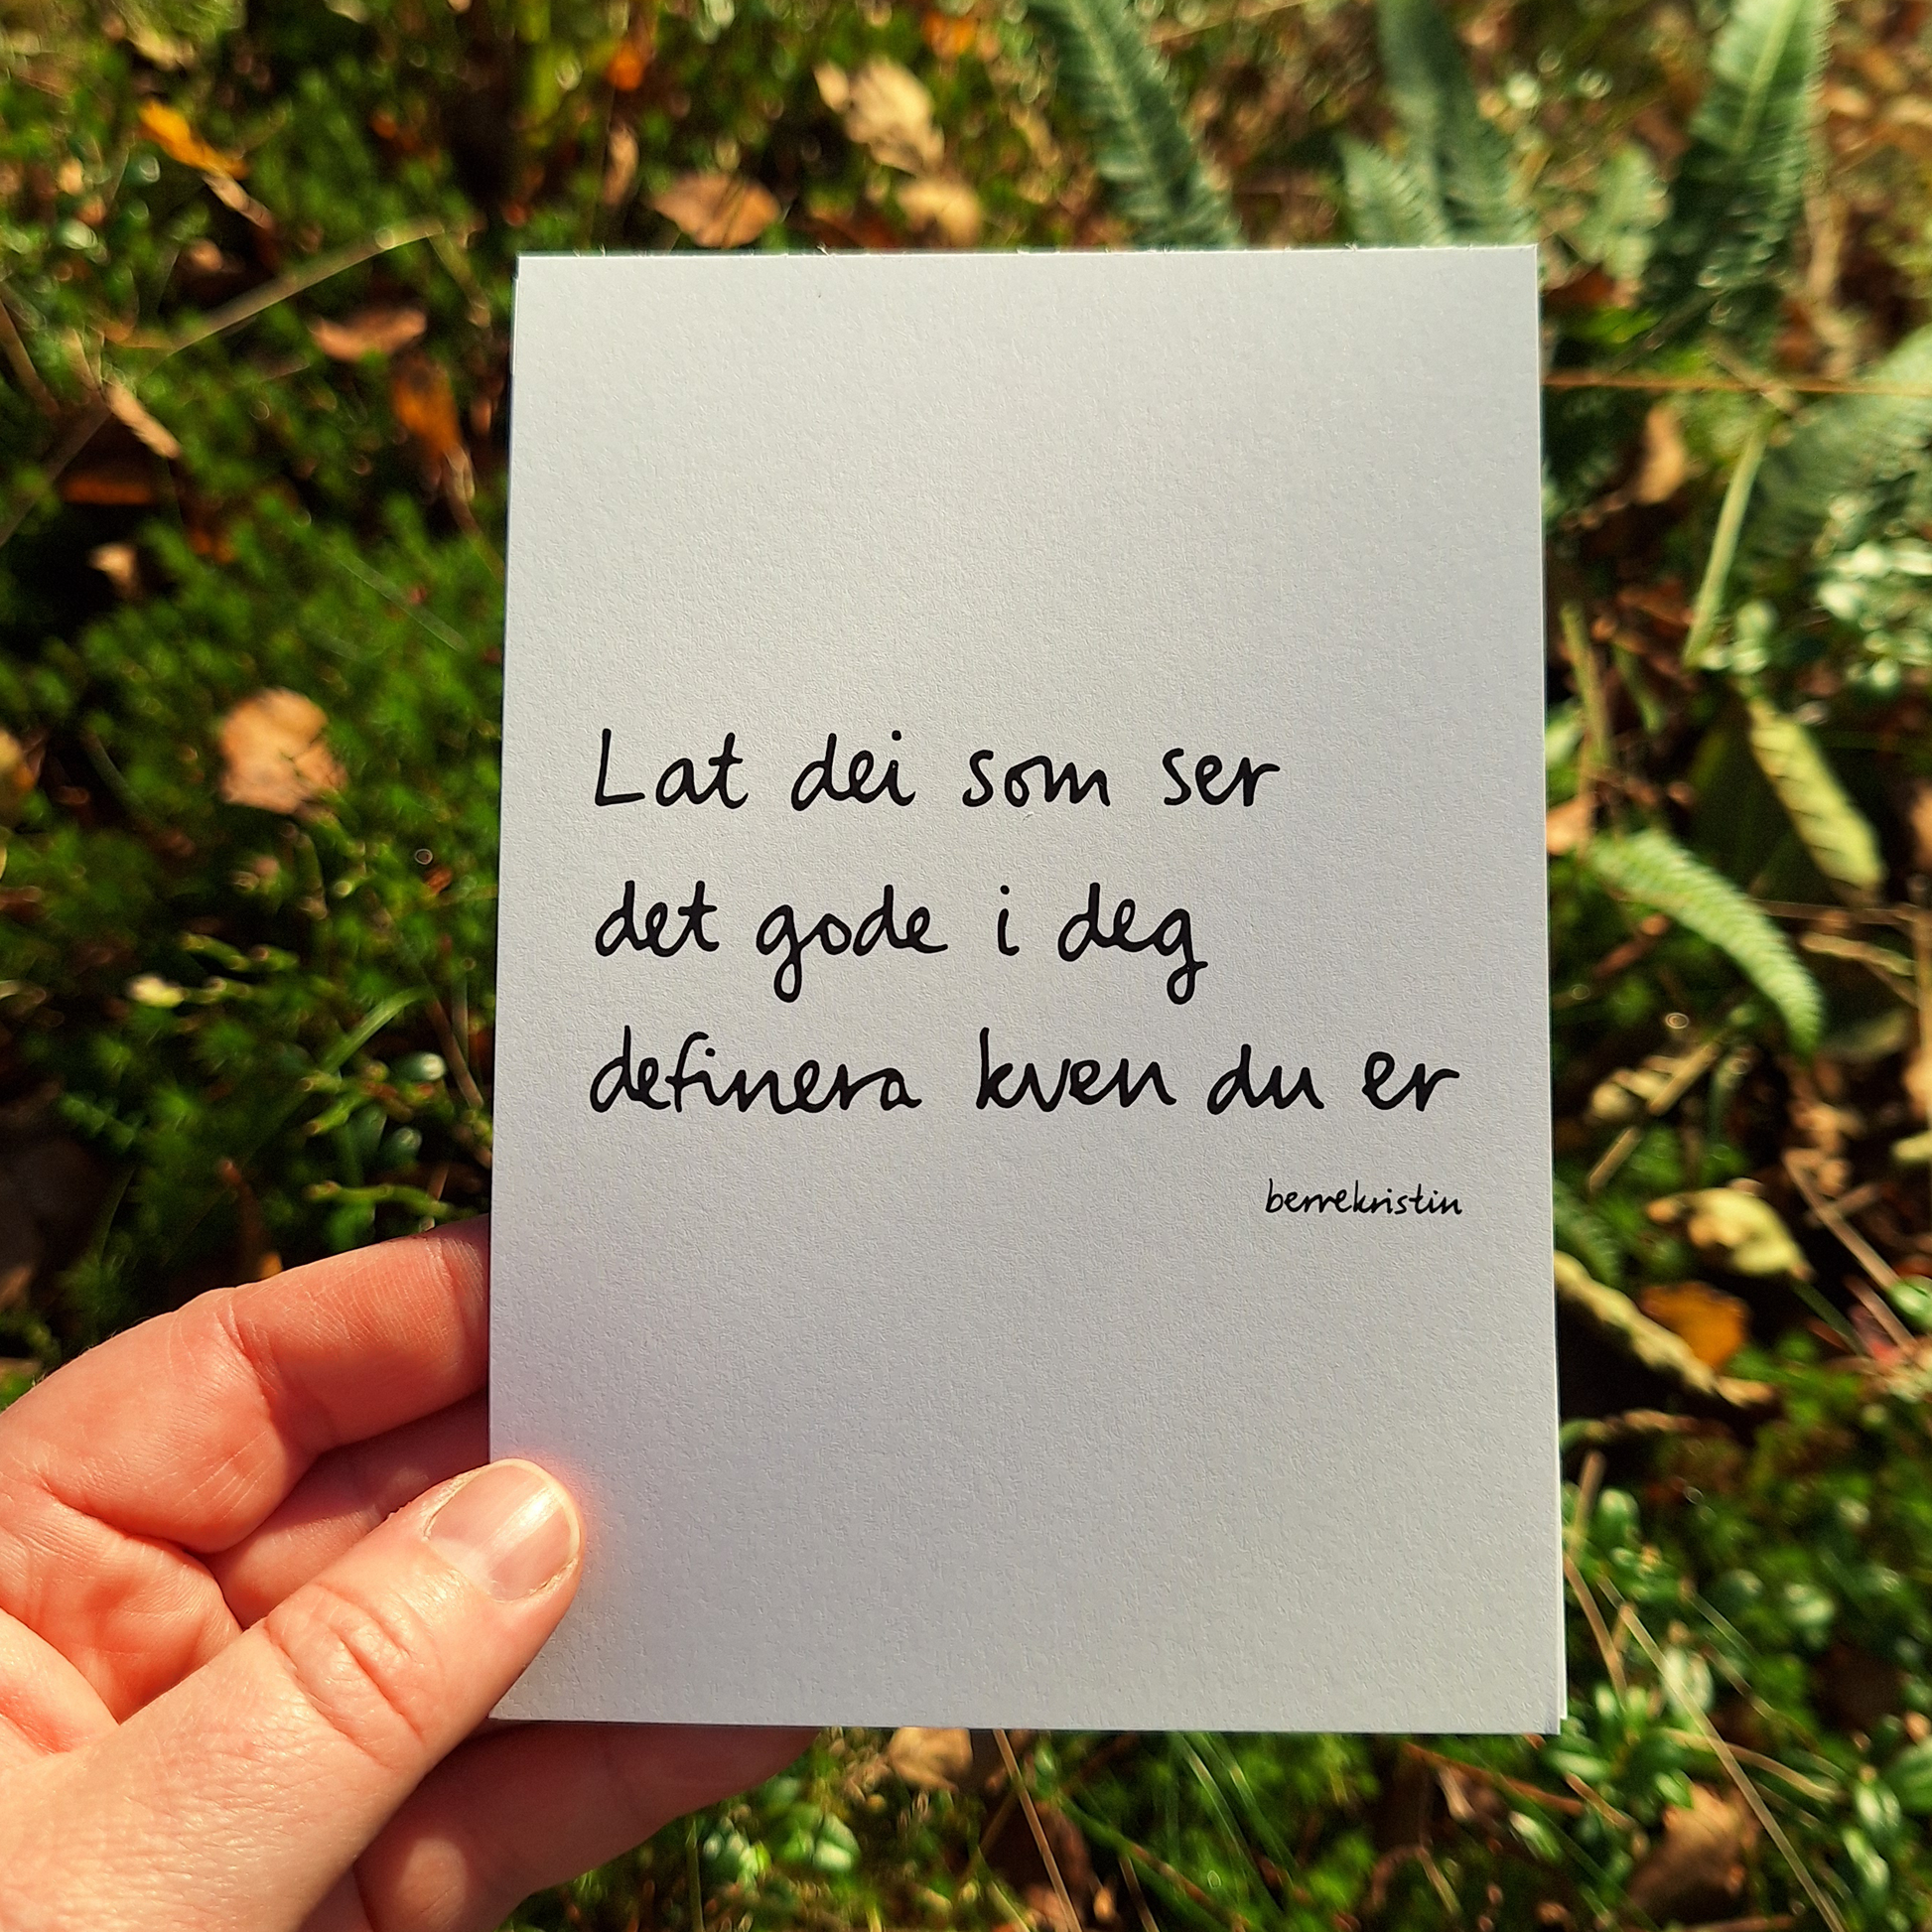 Lat dei som ser
det gode i deg
definera kven du er
berrekristin